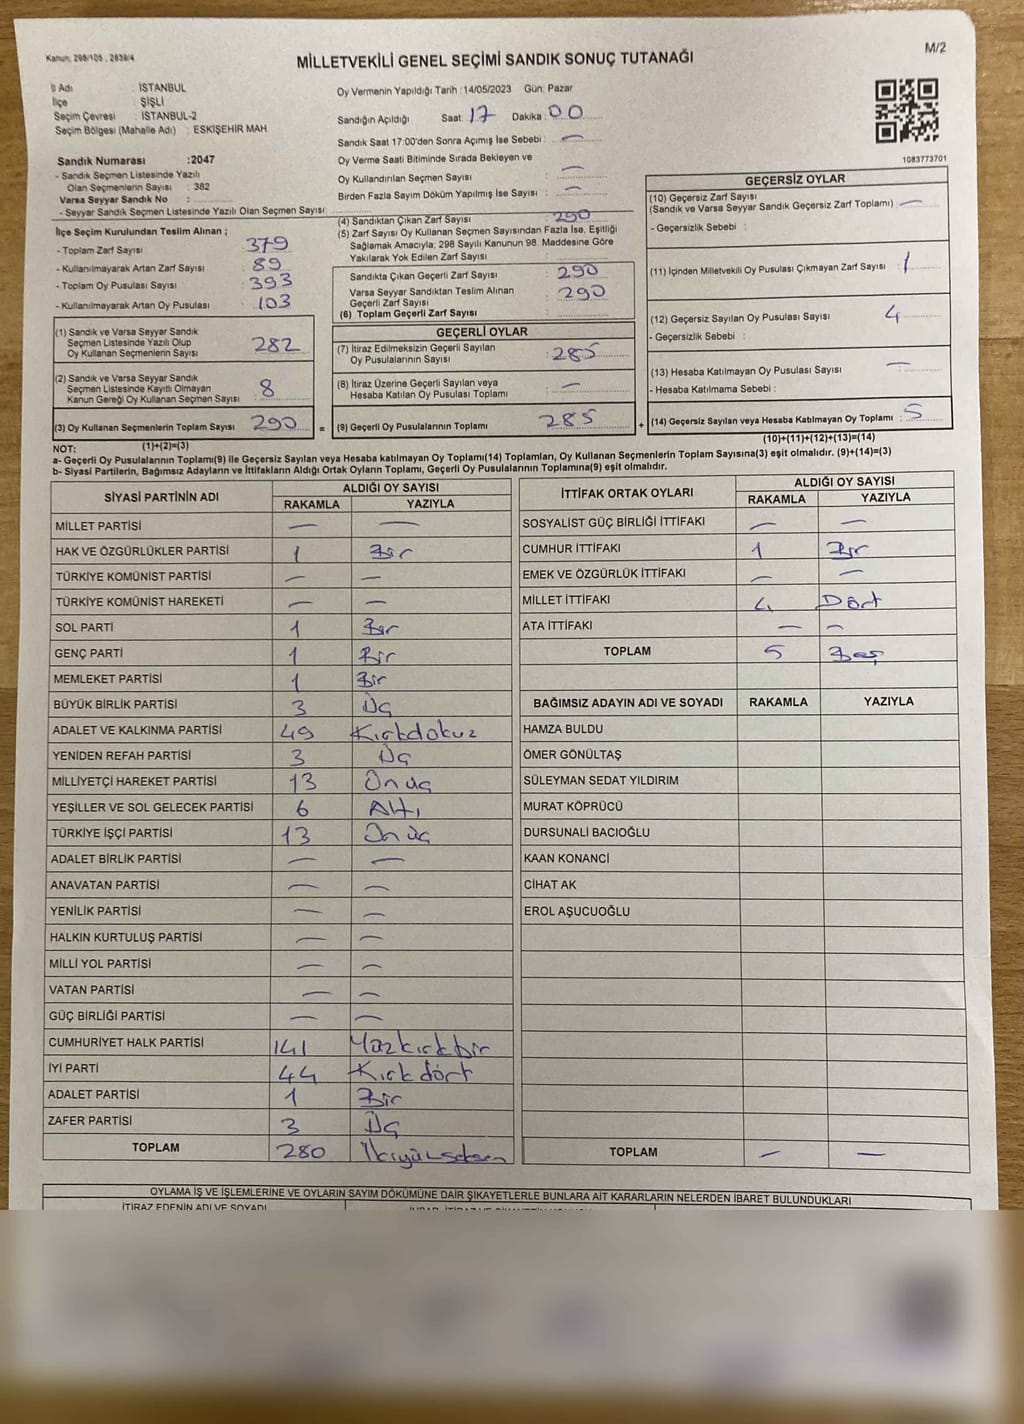 Kanun; 298/105 , 2839/4
M/2
MİLLETVEKİLİ GENEL SEÇİMİ SANDIK SONUÇ TUTANAĞI
İl Adı : İSTANBUL
İlçe : ŞİŞLİ
Seçim Çevresi : İSTANBUL-2
Seçim Bölgesi (Mahalle Adı) : ESKİŞEHİR MAH
Oy Vermenin Yapıldığı Tarih :14/05/2023 Gün: Pazar
Sandığın Açıldığı Saat: 17 Dakika: 00
Sandık Saat 17:00'den Sonra Açımış İse Sebebi : —
Oy Verme Saati Bitiminde Sırada Bekleyen ve
Oy Kullandırılan Seçmen Sayısı : —
Birden Fazla Sayım Döküm Yapılmış İse Sayısı : —
1083773701
Sandık Numarası :2047
- Sandık Seçmen Listesinde Yazılı
Olan Seçmenlerin Sayısı : 382
Varsa Seyyar Sandık No :
- Seyyar Sandık Seçmen Listesinde Yazılı Olan Seçmen Sayısı:
İlçe Seçim Kurulundan Teslim Alınan ;
- Toplam Zarf Sayısı : 379
- Kullanılmayarak Artan Zarf Sayısı : 89
- Toplam Oy Pusulası Sayısı : 393
- Kullanılmayarak Artan Oy Pusulası : 103
(1) Sandık ve Varsa Seyyar Sandık
Seçmen Listesinde Yazılı Olup
Oy Kullanan Seçmenlerin Sayısı : 282
(2) Sandık ve Varsa Seyyar Sandık
Seçmen Listesinde Kayıtlı Olmayan
Kanun Gereği Oy Kullanan Seçmen Sayısı : 8
(3) Oy Kullanan Seçmenlerin Toplam Sayısı : 290
(1)+(2)=(3)
(4) Sandıktan Çıkan Zarf Sayısı : 290
(5) Zarf Sayısı Oy Kullanan Seçmen Sayısından Fazla İse, Eşitliği
Sağlamak Amacıyla; 298 Sayılı Kanunun 98. Maddesine Göre
Yakılarak Yok Edilen Zarf Sayısı :
Sandıkta Çıkan Geçerli Zarf Sayısı : 290
Varsa Seyyar Sandıktan Teslim Alınan : 290
Geçerli Zarf Sayısı
(6) Toplam Geçerli Zarf Sayısı :
GEÇERLİ OYLAR
(7) İtiraz Edilmeksizin Geçerli Sayılan
Oy Pusulalarının Sayısı : 285
(8) İtiraz Üzerine Geçerli Sayılan veya
Hesaba Katılan Oy Pusulası Toplamı : —
= (9) Geçerli Oy Pusulalarının Toplamı : 285
GEÇERSİZ OYLAR
(10) Geçersiz Zarf Sayısı
(Sandık ve Varsa Seyyar Sandık Geçersiz Zarf Toplamı) : —
- Geçersizlik Sebebi :
(11) İçinden Milletvekili Oy Pusulası Çıkmayan Zarf Sayısı : 1
(12) Geçersiz Sayılan Oy Pusulası Sayısı : 4
- Geçersizlik Sebebi :
(13) Hesaba Katılmayan Oy Pusulası Sayısı : —
- Hesaba Katılmama Sebebi :
+ (14) Geçersiz Sayılan veya Hesaba Katılmayan Oy Toplamı : 5
(10)+(11)+(12)+(13)=(14)
NOT:
a- Geçerli Oy Pusulalarının Toplamı(9) ile Geçersiz Sayılan veya Hesaba Katılmayan Oy Toplamı(14) Toplamları, Oy Kullanan Seçmenlerin Toplam Sayısına(3) eşit olmalıdır. (9)+(14)=(3)
b- Siyasi Partilerin, Bağımsız Adayların ve İttifakların Aldığı Ortak Oyların Toplamı, Geçerli Oy Pusulalarının Toplamına(9) eşit olmalıdır.
SİYASİ PARTİNİN ADI ALDIĞI OY SAYISI
RAKAMLA YAZIYLA
MİLLET PARTİSİ — —
HAK VE ÖZGÜRLÜKLER PARTİSİ 1 Bir
TÜRKİYE KOMÜNİST PARTİSİ — —
TÜRKİYE KOMÜNİST HAREKETİ — —
SOL PARTİ 1 Bir
GENÇ PARTİ 1 Bir
MEMLEKET PARTİSİ 1 Bir
BÜYÜK BİRLİK PARTİSİ 3 Üç
ADALET VE KALKINMA PARTİSİ 49 Kırkdokuz
YENİDEN REFAH PARTİSİ 3 Üç
MİLLİYETÇİ HAREKET PARTİSİ 13 Onüç
YEŞİLLER VE SOL GELECEK PARTİSİ 6 Altı
TÜRKİYE İŞÇİ PARTİSİ 13 Onüç
ADALET BİRLİK PARTİSİ — —
ANAVATAN PARTİSİ — —
YENİLİK PARTİSİ — —
HALKIN KURTULUŞ PARTİSİ — —
MİLLİ YOL PARTİSİ — —
VATAN PARTİSİ — —
GÜÇ BİRLİĞİ PARTİSİ — —
CUMHURİYET HALK PARTİSİ 141 Yüzkırkbir
İYİ PARTİ 44 Kırkdört
ADALET PARTİSİ 1 Bir
ZAFER PARTİSİ 3 Üç
TOPLAM 280 İkiyüzseksen
İTTİFAK ORTAK OYLARI ALDIĞI OY SAYISI
RAKAMLA YAZIYLA
SOSYALİST GÜÇ BİRLİĞİ İTTİFAKI — —
CUMHUR İTTİFAKI 1 Bir
EMEK VE ÖZGÜRLÜK İTTİFAKI — —
MİLLET İTTİFAKI 4 Dört
ATA İTTİFAKI — —
TOPLAM 5 Beş
BAĞIMSIZ ADAYIN ADI VE SOYADI RAKAMLA YAZIYLA
HAMZA BULDU
ÖMER GÖNÜLTAŞ
SÜLEYMAN SEDAT YILDIRIM
MURAT KÖPRÜCÜ
DURSUNALİ BACIOĞLU
KAAN KONANCİ
CİHAT AK
EROL AŞUCUOĞLU
TOPLAM — —
OYLAMA İŞ VE İŞLEMLERİNE VE OYLARIN SAYIM DÖKÜMÜNE DAİR ŞİKAYETLERLE BUNLARA AİT KARARLARIN NELERDEN İBARET BULUNDUKLARI
İTİRAZ EDENİN ADI VE SOYADI